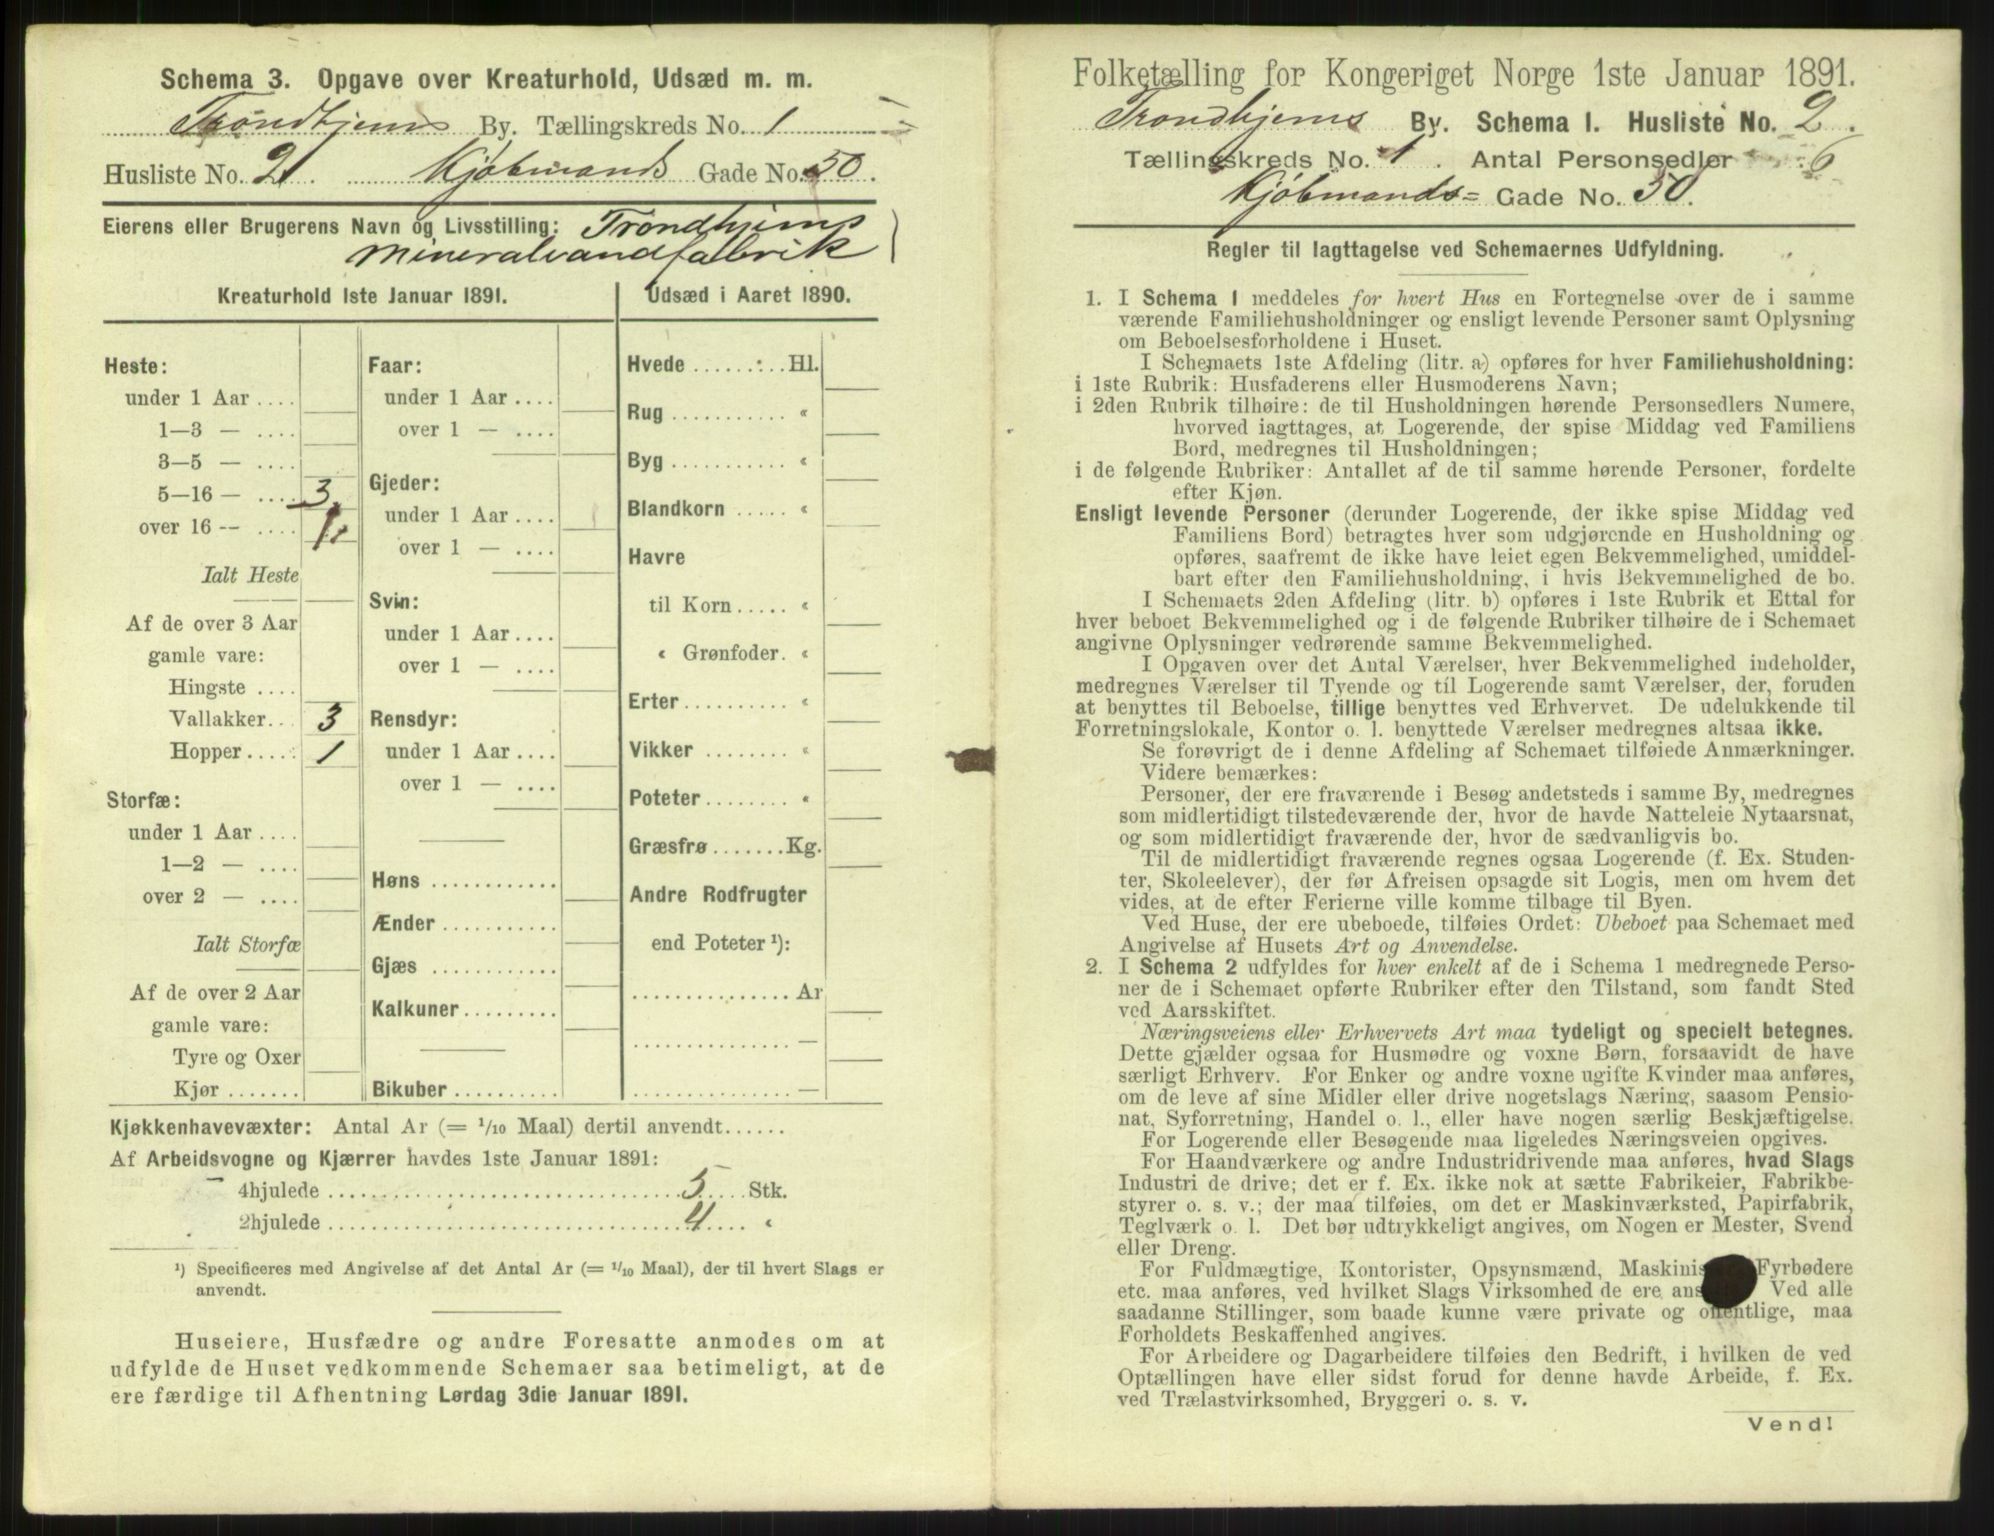 Schema 3. Opgave over Kreaturhold, Udsæd m. m.
Trondhjems By. Tællingskreds No. 1
Husliste No. 2. Kjøbmands Gade No. 50.
Eierens eller Brugerens Navn og Livsstilling: Trondhjems
Mineralvandfabrik
Kreaturhold 1ste Januar 1891.
Heste:
under 1 Aar ....
1—3 — ....
3—5 — ....
5—16 — .... 3.
over 16 — .... 1.
Ialt Heste
Af de over 3 Aar
gamle vare:
Hingste ....
Vallakker.. 3
Hopper..... 1
Storfæ:
under 1 Aar ....
1—2 — ....
over 2 — ....
Ialt Storfæ
Af de over 2 Aar
gamle vare:
Tyre og Oxer
Kjør .......
Faar:
under 1 Aar ....
over 1 — ....
Gjeder:
under 1 Aar ....
over 1 — ....
Svin:
under 1 Aar ....
over 1 — ....
Rensdyr:
under 1 Aar ....
over 1 — ....
Høns ............
Ænder ...........
Gjæs ............
Kalkuner.........
Bikuber ..........
Udsæd i Aaret 1890.
Hvede ....... Hl.
Rug ........... «
Byg ........... «
Blandkorn ...... «
Havre
til Korn..... «
« Grønfoder. «
Erter.......... «
Vikker ........ «
Poteter........ «
Græsfrø.......Kg.
Andre Rodfrugter
end Poteter ¹):
............... Ar
............... —
............... —
Kjøkkenhavevæxter: Antal Ar (= 1/10 Maal) dertil anvendt......
Af Arbeidsvogne og Kjærrer havdes 1ste Januar 1891:
4hjulede .................................. 5 .... Stk.
2hjulede .................................. 4 .... «
¹) Specificeres med Angivelse af det Antal Ar (= 1/10 Maal), der til hvert Slags er
anvendt.
Huseiere, Husfædre og andre Foresatte anmodes om at
udfylde de Huset vedkommende Schemaer saa betimeligt, at de
ere færdige til Afhentning Lørdag 3die Januar 1891.
Folketælling for Kongeriget Norge 1ste Januar 1891.
Trondhjems By. Schema 1. Husliste No. 2.
Tællingskreds No. 1. Antal Personsedler 6
Kjøbmands= Gade No. 50.
Regler til Iagttagelse ved Schemaernes Udfyldning.
1. I Schema 1 meddeles for hvert Hus en Fortegnelse over de i samme
værende Familiehusholdninger og ensligt levende Personer samt Oplysning
om Beboelsesforholdene i Huset.
I Schemaets 1ste Afdeling (litr. a) opføres for hver Familiehusholdning:
i 1ste Rubrik: Husfaderens eller Husmoderens Navn;
i 2den Rubrik tilhøire: de til Husholdningen hørende Personsedlers Numere,
hvorved iagttages, at Logerende, der spise Middag ved Familiens
Bord, medregnes til Husholdningen;
i de følgende Rubriker: Antallet af de til samme hørende Personer, fordelte
efter Kjøn.
Ensligt levende Personer (derunder Logerende, der ikke spise Middag ved
Familiens Bord) betragtes hver som udgjørende en Husholdning og
opføres, saafremt de ikke have leiet egen Bekvemmelighed, umiddel-
bart efter den Familiehusholdning, i hvis Bekvemmelighed de bo.
I Schemaets 2den Afdeling (litr. b) opføres i 1ste Rubrik et Ettal for
hver beboet Bekvemmelighed og i de følgende Rubriker tilhøire de i Schemaet
angivne Oplysninger vedrørende samme Bekvemmelighed.
I Opgaven over det Antal Værelser, hver Bekvemmelighed indeholder,
medregnes Værelser til Tyende og til Logerende samt Værelser, der, foruden
at benyttes til Beboelse, tillige benyttes ved Erhvervet. De udelukkende til
Forretningslokale, Kontor o. l. benyttede Værelser medregnes altsaa ikke.
Se forøvrigt de i denne Afdeling af Schemaet tilføiede Anmærkninger.
Videre bemærkes:
Personer, der ere fraværende i Besøg andetsteds i samme By, medregnes
som midlertidigt tilstedeværende der, hvor de havde Natteleie Nytaarsnat,
og som midlertidigt fraværende der, hvor de sædvanligvis bo.
Til de midlertidigt fraværende regnes ogsaa Logerende (f. Ex. Studen-
ter, Skoleelever), der før Afreisen opsagde sit Logis, men om hvem det
vides, at de efter Ferierne ville komme tilbage til Byen.
Ved Huse, der ere ubeboede, tilføies Ordet: Ubeboet paa Schemaet med
Angivelse af Husets Art og Anvendelse.
2. I Schema 2 udfyldes for hver enkelt af de i Schema 1 medregnede Perso-
ner de i Schemaet opførte Rubriker efter den Tilstand, som fandt Sted
ved Aarsskiftet.
Næringsveiens eller Erhvervets Art maa tydeligt og specielt betegnes.
Dette gjælder ogsaa for Husmødre og voxne Børn, forsaavidt de have
særligt Erhverv. For Enker og andre voxne ugifte Kvinder maa anføres,
om de leve af sine Midler eller drive nogetslags Næring, saasom Pensio-
nat, Syforretning, Handel o. l., eller have nogen særlig Beskjæftigelse.
For Logerende eller Besøgende maa ligeledes Næringsveien opgives.
For Haandværkere og andre Industridrivende maa anføres, hvad Slags
Industri de drive; det er f. Ex. ikke nok at sætte Fabrikeier, Fabrikbe-
styrer o. s. v.; der maa tilføies, om det er Maskinværksted, Papirfabrik,
Teglværk o. l. Det bør udtrykkeligt angives, om Nogen er Mester, Svend
eller Dreng.
For Fuldmægtige, Kontorister, Opsynsmænd, Maskinis Fyrbødere
etc. maa anføres, ved hvilket Slags Virksomhed de ere ans Ved alle
saadanne Stillinger, som baade kunne være private og offentlige, maa
Forholdets Beskaffenhed angives.
For Arbeidere og Dagarbeidere tilføies den Bedrift, i hvilken de ved
Optællingen have eller sidst forud for denne havde Arbeide, f. Ex.
ved Trælastvirksomhed, Bryggeri o. s. v.
Vend!